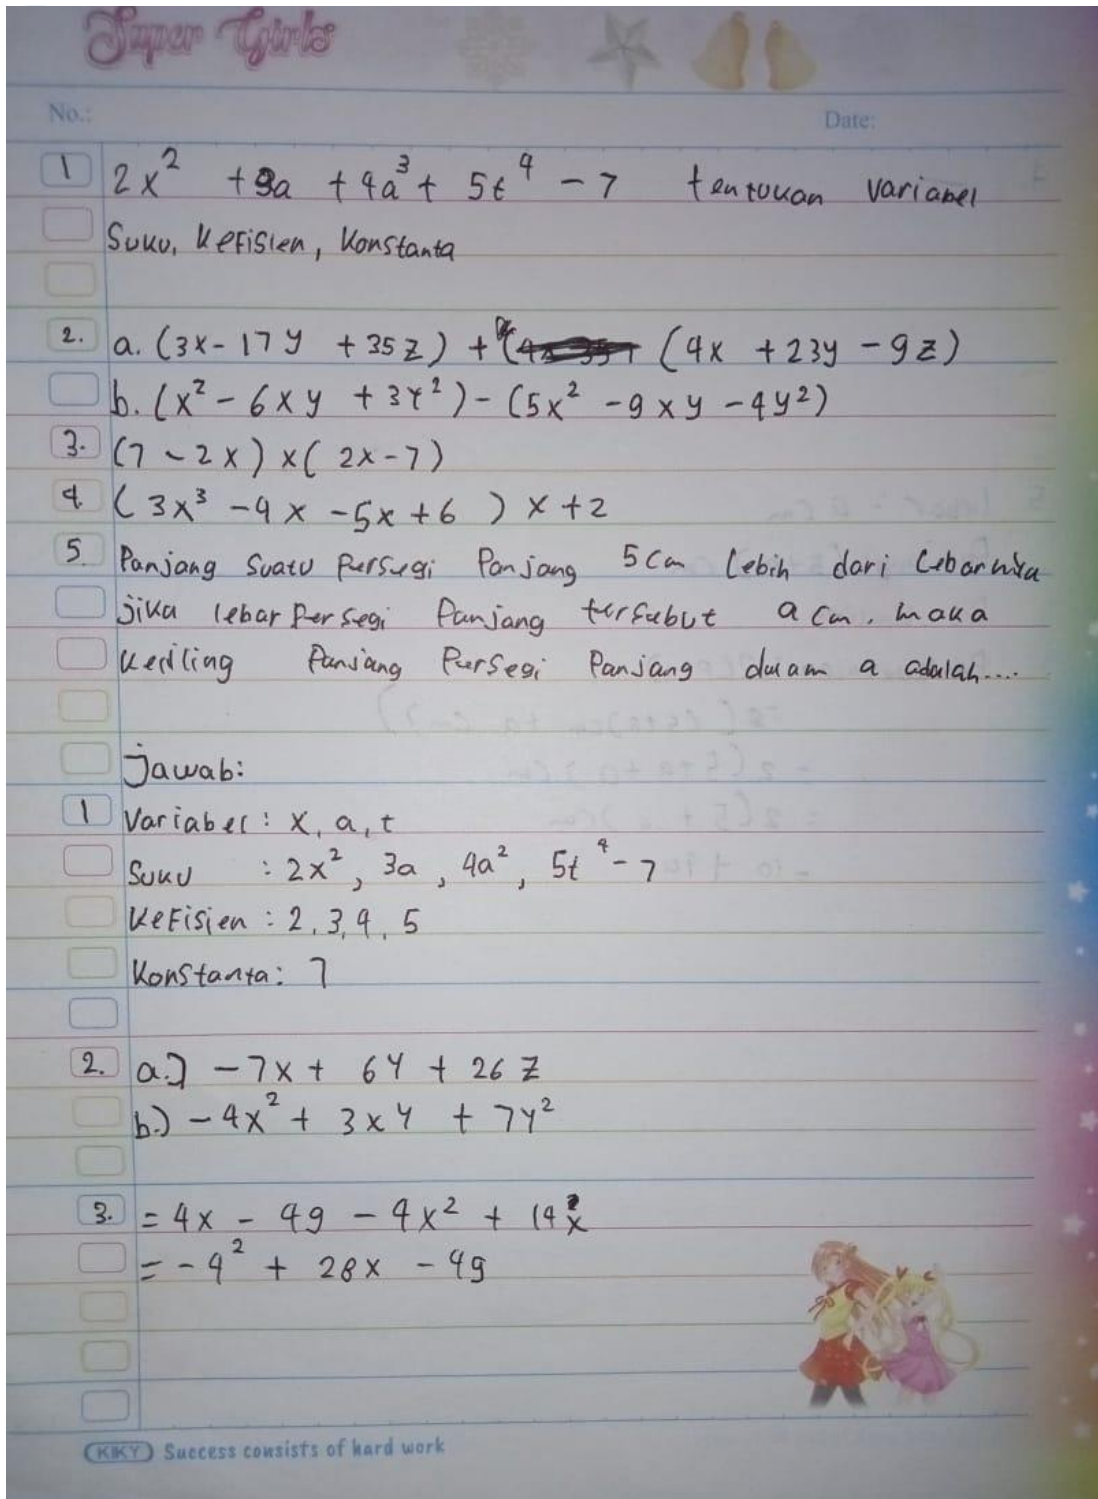 Super Girls
No.: Date:
1 2x² +3a +4a³ + 5t⁴ - 7 tentukan variabel
Suku, Kefisien, Konstanta
2. a. (3x - 17y + 35z) + (4x + 23y - 9z)
b. (x² - 6xy + 3y²) - (5x² - 9xy - 4y²)
3. (7 - 2x) x (2x - 7)
4. (3x³ - 4x - 5x + 6) x + 2
5. Panjang Suatu Persegi Panjang 5 cm lebih dari lebarnya
jika lebar Persegi Panjang tersebut a cm. maka
keliling Panjang Persegi Panjang dalam a adalah....
Jawab:
1 Variabel : x, a, t
Suku : 2x², 3a, 4a², 5t⁴ - 7
Kefisien : 2, 3, 4, 5
Konstanta : 7
2. a.) -7x + 6y + 26z
b.) -4x² + 3xy + 7y²
3. = 4x - 49 - 4x² + 14x
= -4² + 28x - 49
KIKY Success consists of hard work